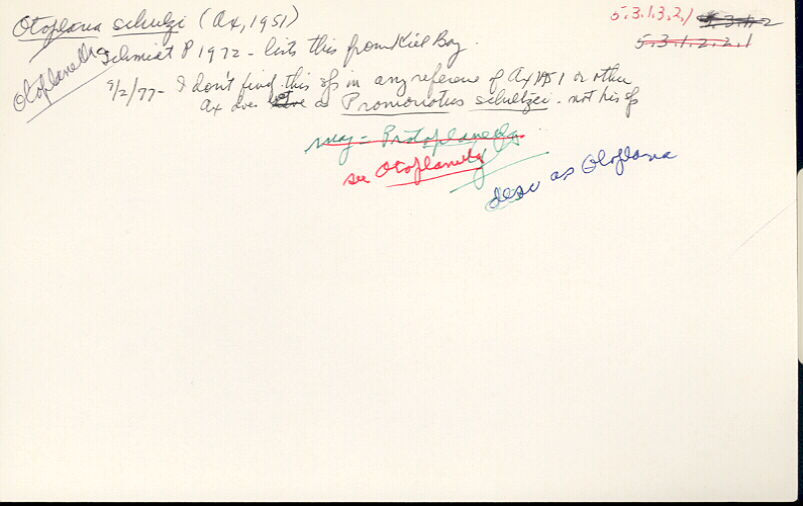 Otoplana schulzi (Ax, 1951) 5.3.1.3.2.1
5.3.1.2.2.1
Otoplanella Schmidt P 1972 - lists this from Kiel Bay.
9/2/77 - I don't find this sp in any reference of Ax 1951 or other
Ax does as Promonotus schultzei - not his sp
may = Protoplanella
see Otoplanella
desc as Otoplana